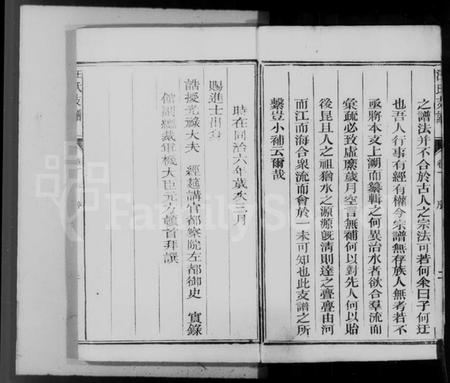 之譜法并不合於古人之宗法可若何余曰子何迂
也吾人行事有經有權今宗譜無存族人無考若不
亟將本支上溯而纂輯之何異治水者欲合羣流而
彙疏必致虛縻歲月空言無補何以對先人何以貽
後昆且人之祖猶水之源源旣清則達之疊疊由河
而江而海合衆流而會於一未可知也此支譜之所
繫豈小補云爾哉
時在同治六年歲次三月
賜進士出身
誥授光祿大夫 經筵講官都察院左都御史 實錄
館副總裁軍機大臣元方頓首拜譔
汪氏支譜
卷
序
汪氏支譜
卷
序
FamilySearch